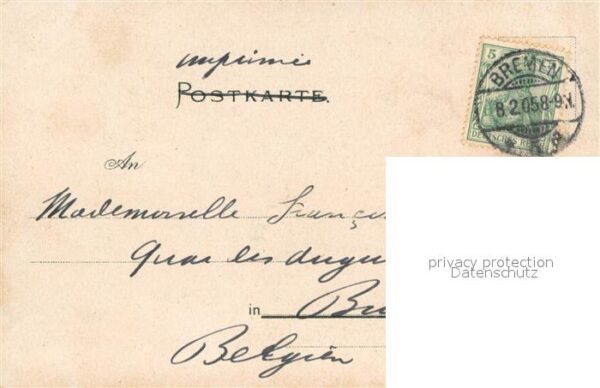 imprimée
POSTKARTE.
5
DEUTSCHES REICH
BREMEN
8.2.05.8-9V.
An
Mademoiselle
Quai
in
Belgien
privacy protection
Datenschutz